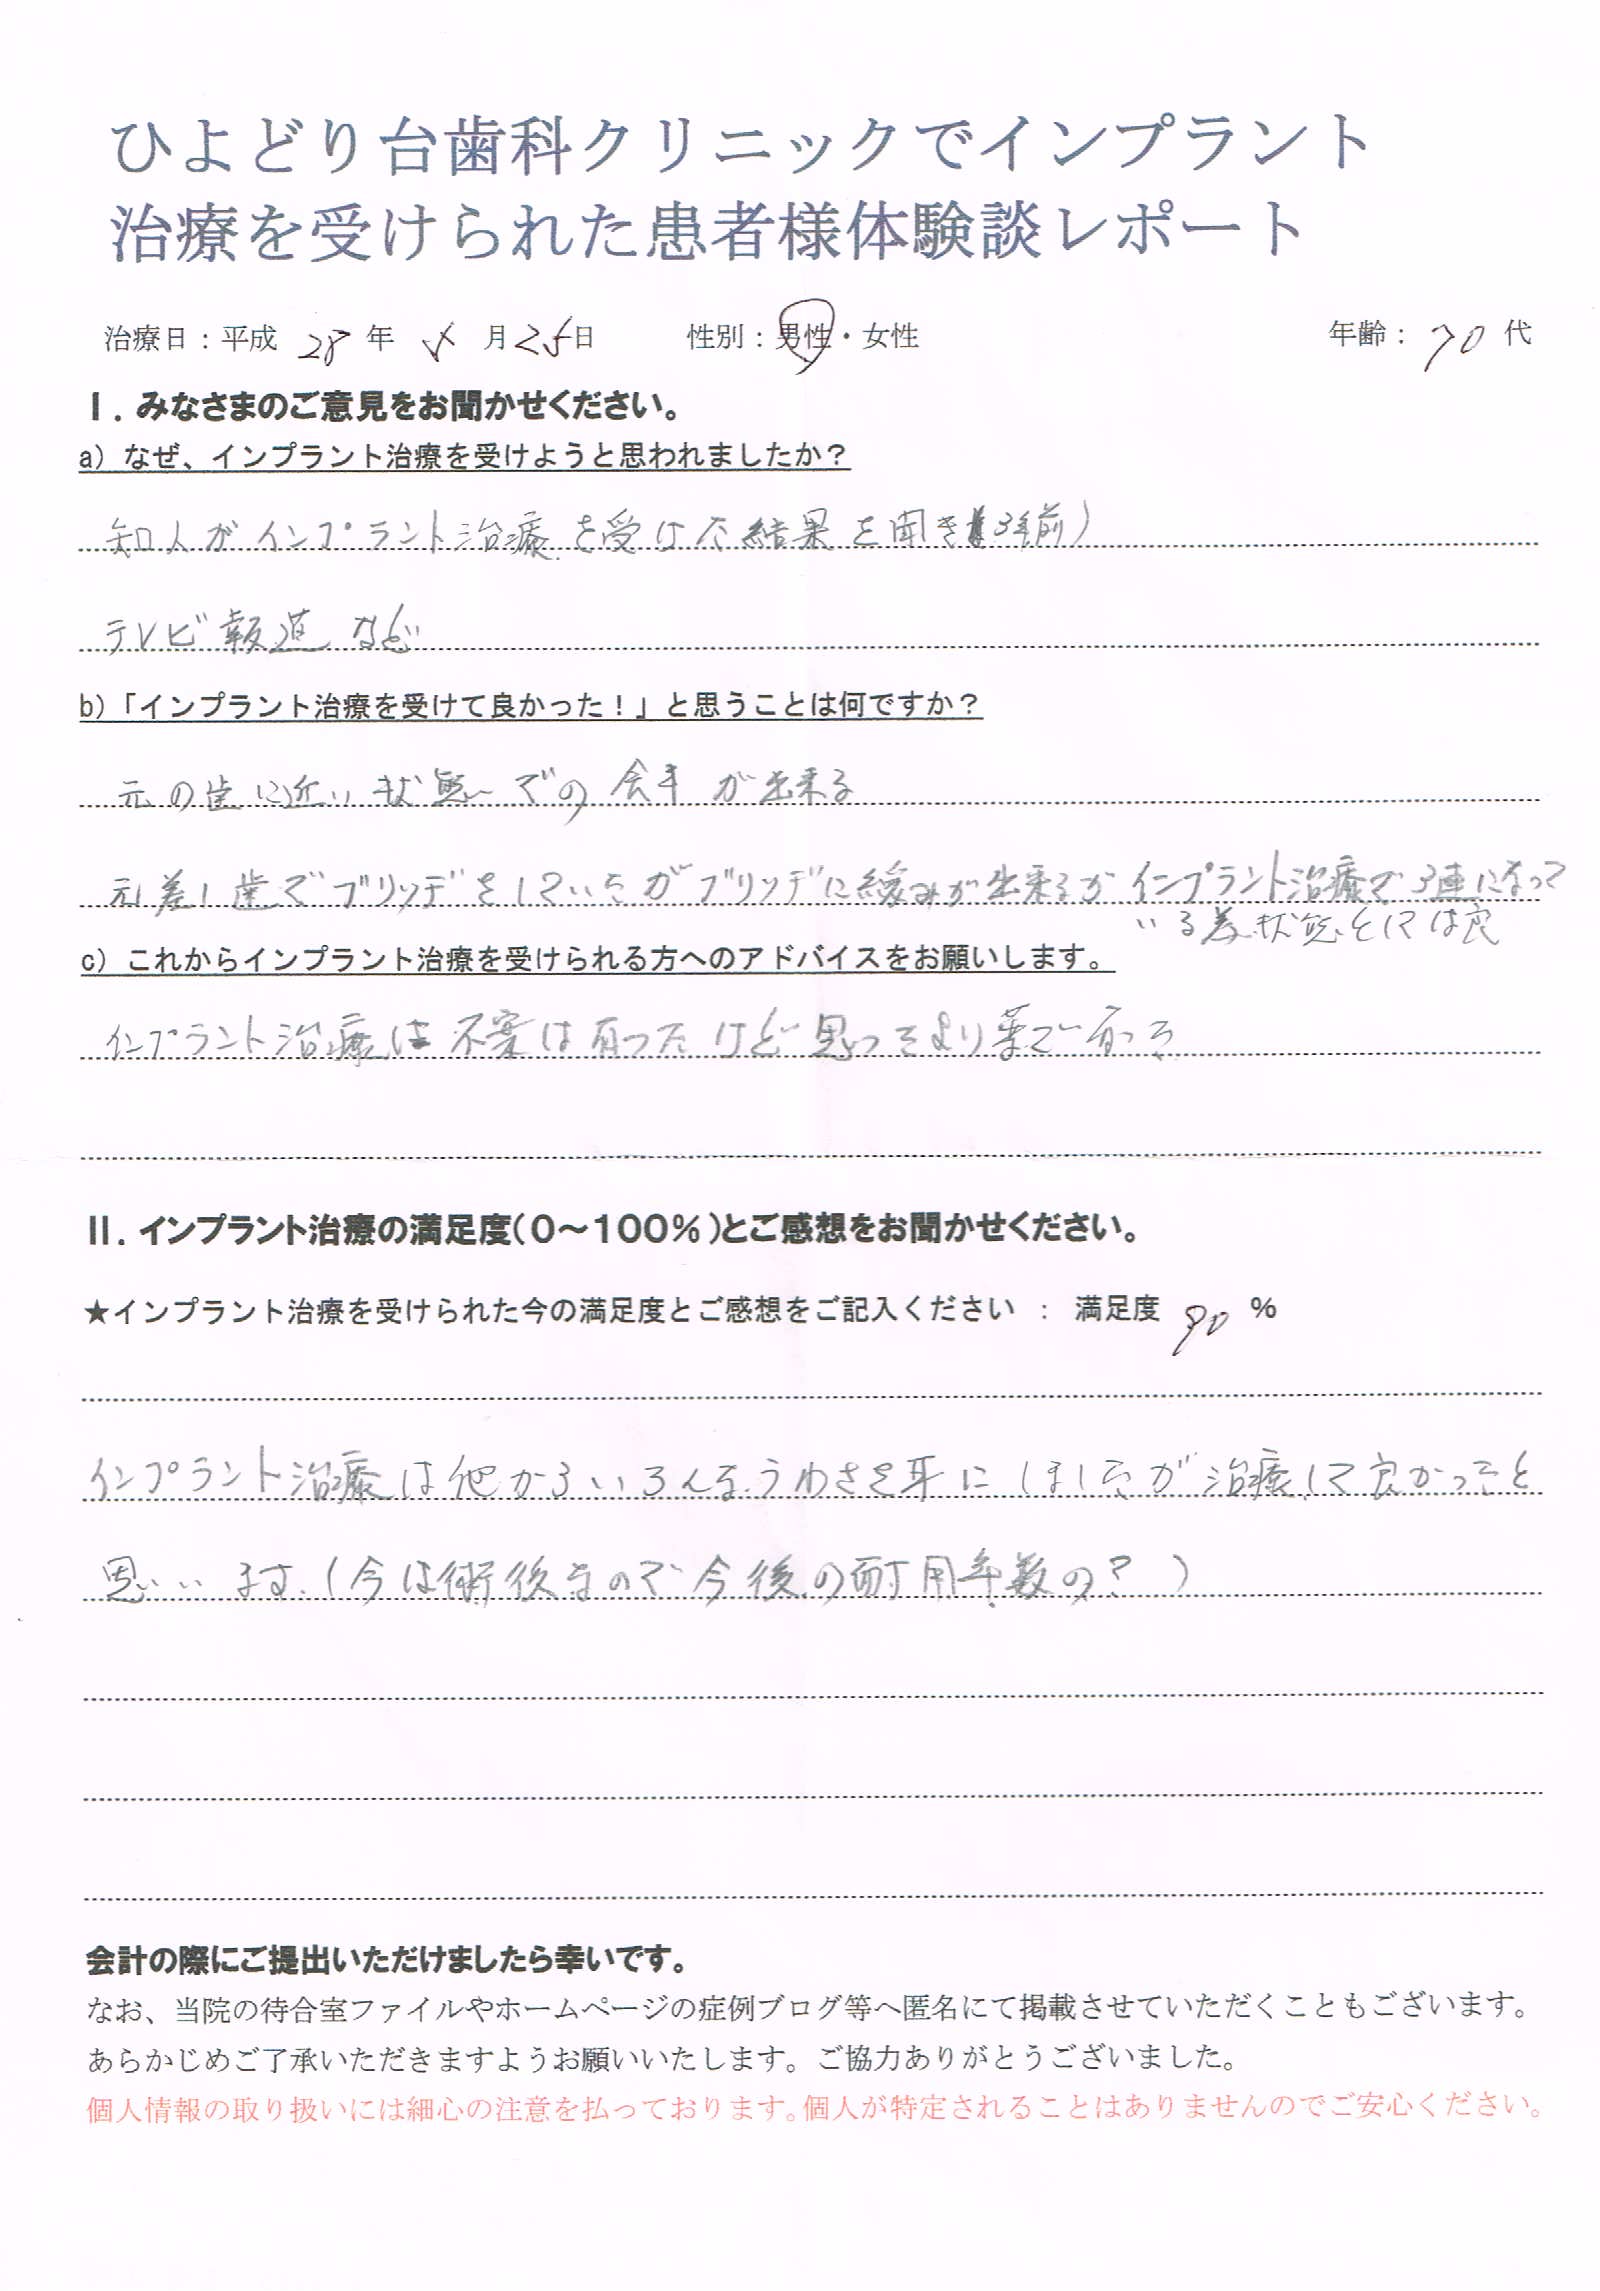 ひよどり台歯科クリニックでインプラント
治療を受けられた患者様体験談レポート
治療日：平成 28 年 5 月 25日 性別：男性・女性 年齢： 70 代
Ⅰ．みなさまのご意見をお聞かせください。
a）なぜ、インプラント治療を受けようと思われましたか？
知人がインプラント治療を受けた結果を聞き 3年前）
テレビ報道など
b）「インプラント治療を受けて良かった！」と思うことは何ですか？
元の歯に近い状態での食事が出来る
元差し歯でブリッヂをしていたがブリッヂに緩みが出来るが インプラント治療で3連になって
いる為状態としては良
c）これからインプラント治療を受けられる方へのアドバイスをお願いします。
インプラント治療は不安は有ったけど思ったより楽で有った
Ⅱ．インプラント治療の満足度（０～１００％）とご感想をお聞かせください。
★インプラント治療を受けられた今の満足度とご感想をご記入ください ： 満足度 90 ％
インプラント治療は他からいろんなうわさを耳にしましたが治療して良かったと
思います.（今は術後なので今後の耐用年数の？ ）
会計の際にご提出いただけましたら幸いです。
なお、当院の待合室ファイルやホームページの症例ブログ等へ匿名にて掲載させていただくこともございます。
あらかじめご了承いただきますようお願いいたします。ご協力ありがとうございました。
個人情報の取り扱いには細心の注意を払っております。個人が特定されることはありませんのでご安心ください。